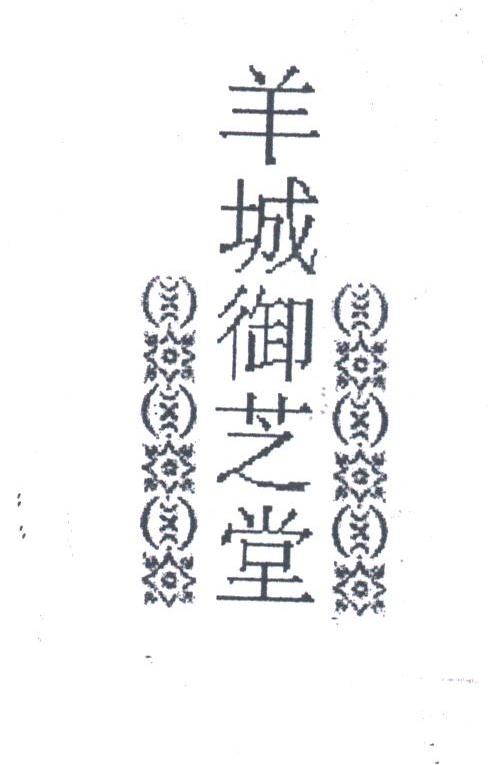 羊城御芝堂